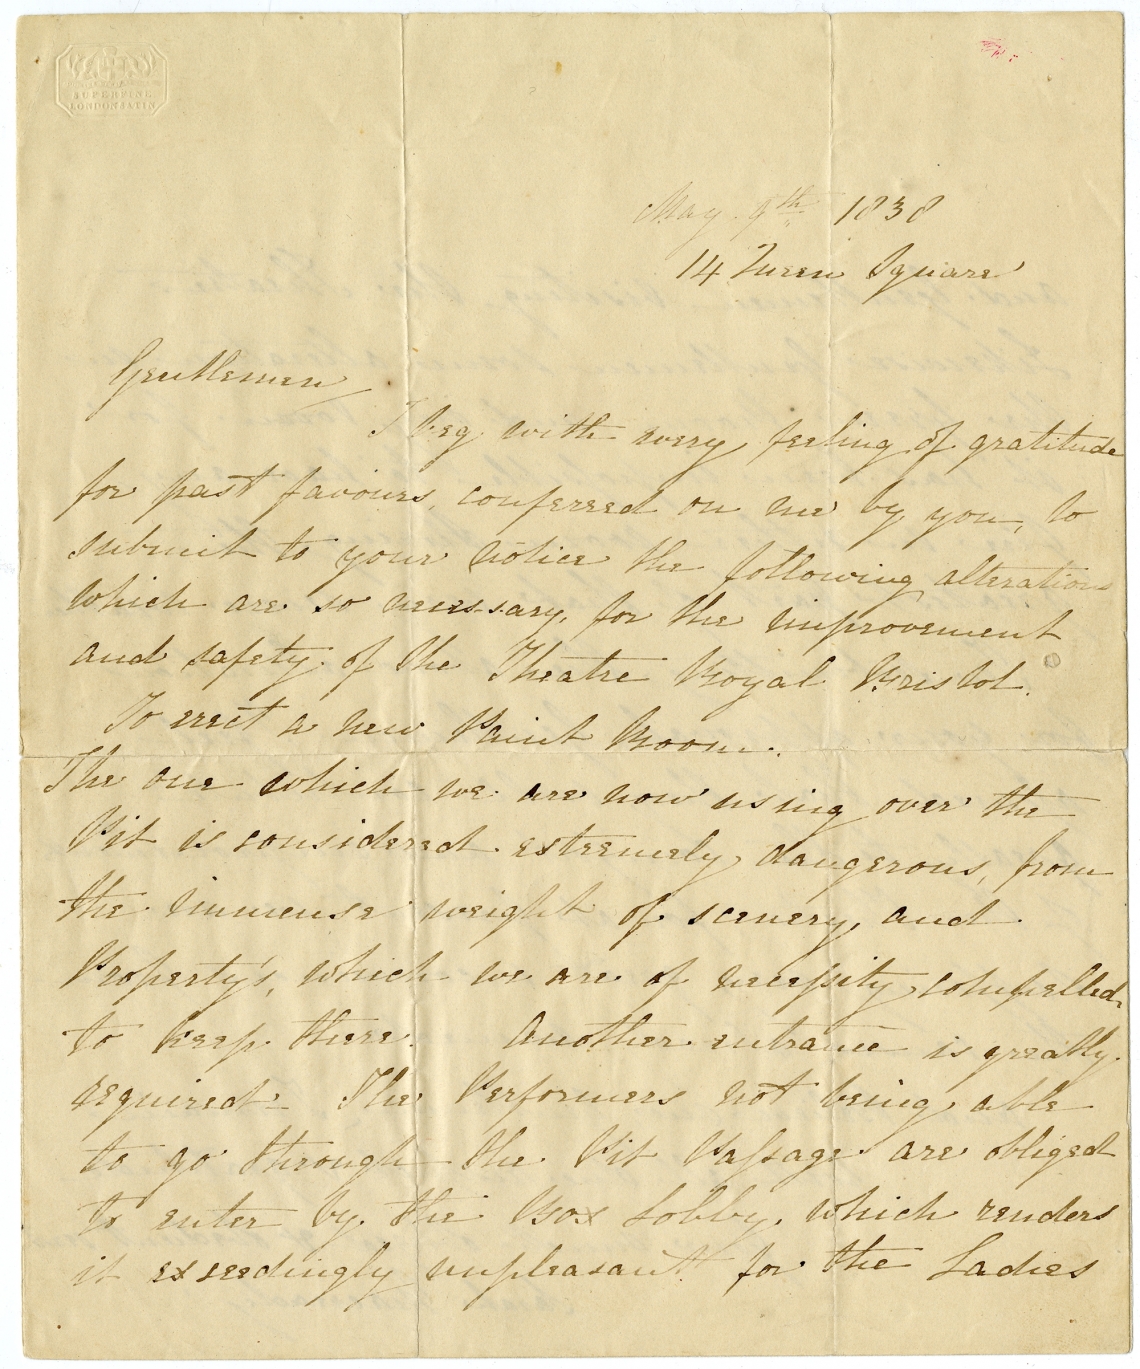 SUPERFINE
LONDON SATIN
May 9th 1838
14 Queen Square
Gentlemen
I beg with every feeling of gratitude
for past favours, conferred on me by you, to
submit to your notice the following alterations
which are so necessary, for the improvement
and safety of the Theatre Royal Bristol.
To erect a new Paint Room.
The one which we are now using over the
Pit is considered extremely dangerous, from
the immense weight of scenery, and
Property's, which we are of necessity compelled
to keep there. Another entrance is greatly
required. The Performers not being able
to go through the Pit Passage are obliged
to enter by the Box Lobby, which renders
it exceedingly unpleasant for the Ladies